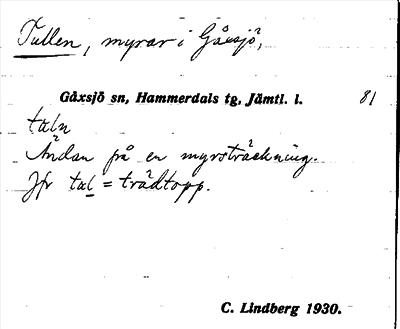 Tullen, myrar i Gåxsjö,
Gåxsjö sn, Hammerdals tg, Jämtl. l. 81
taln
Ändan på en myrsträckning.
Jfr tal = trädtopp.
C. Lindberg 1930.